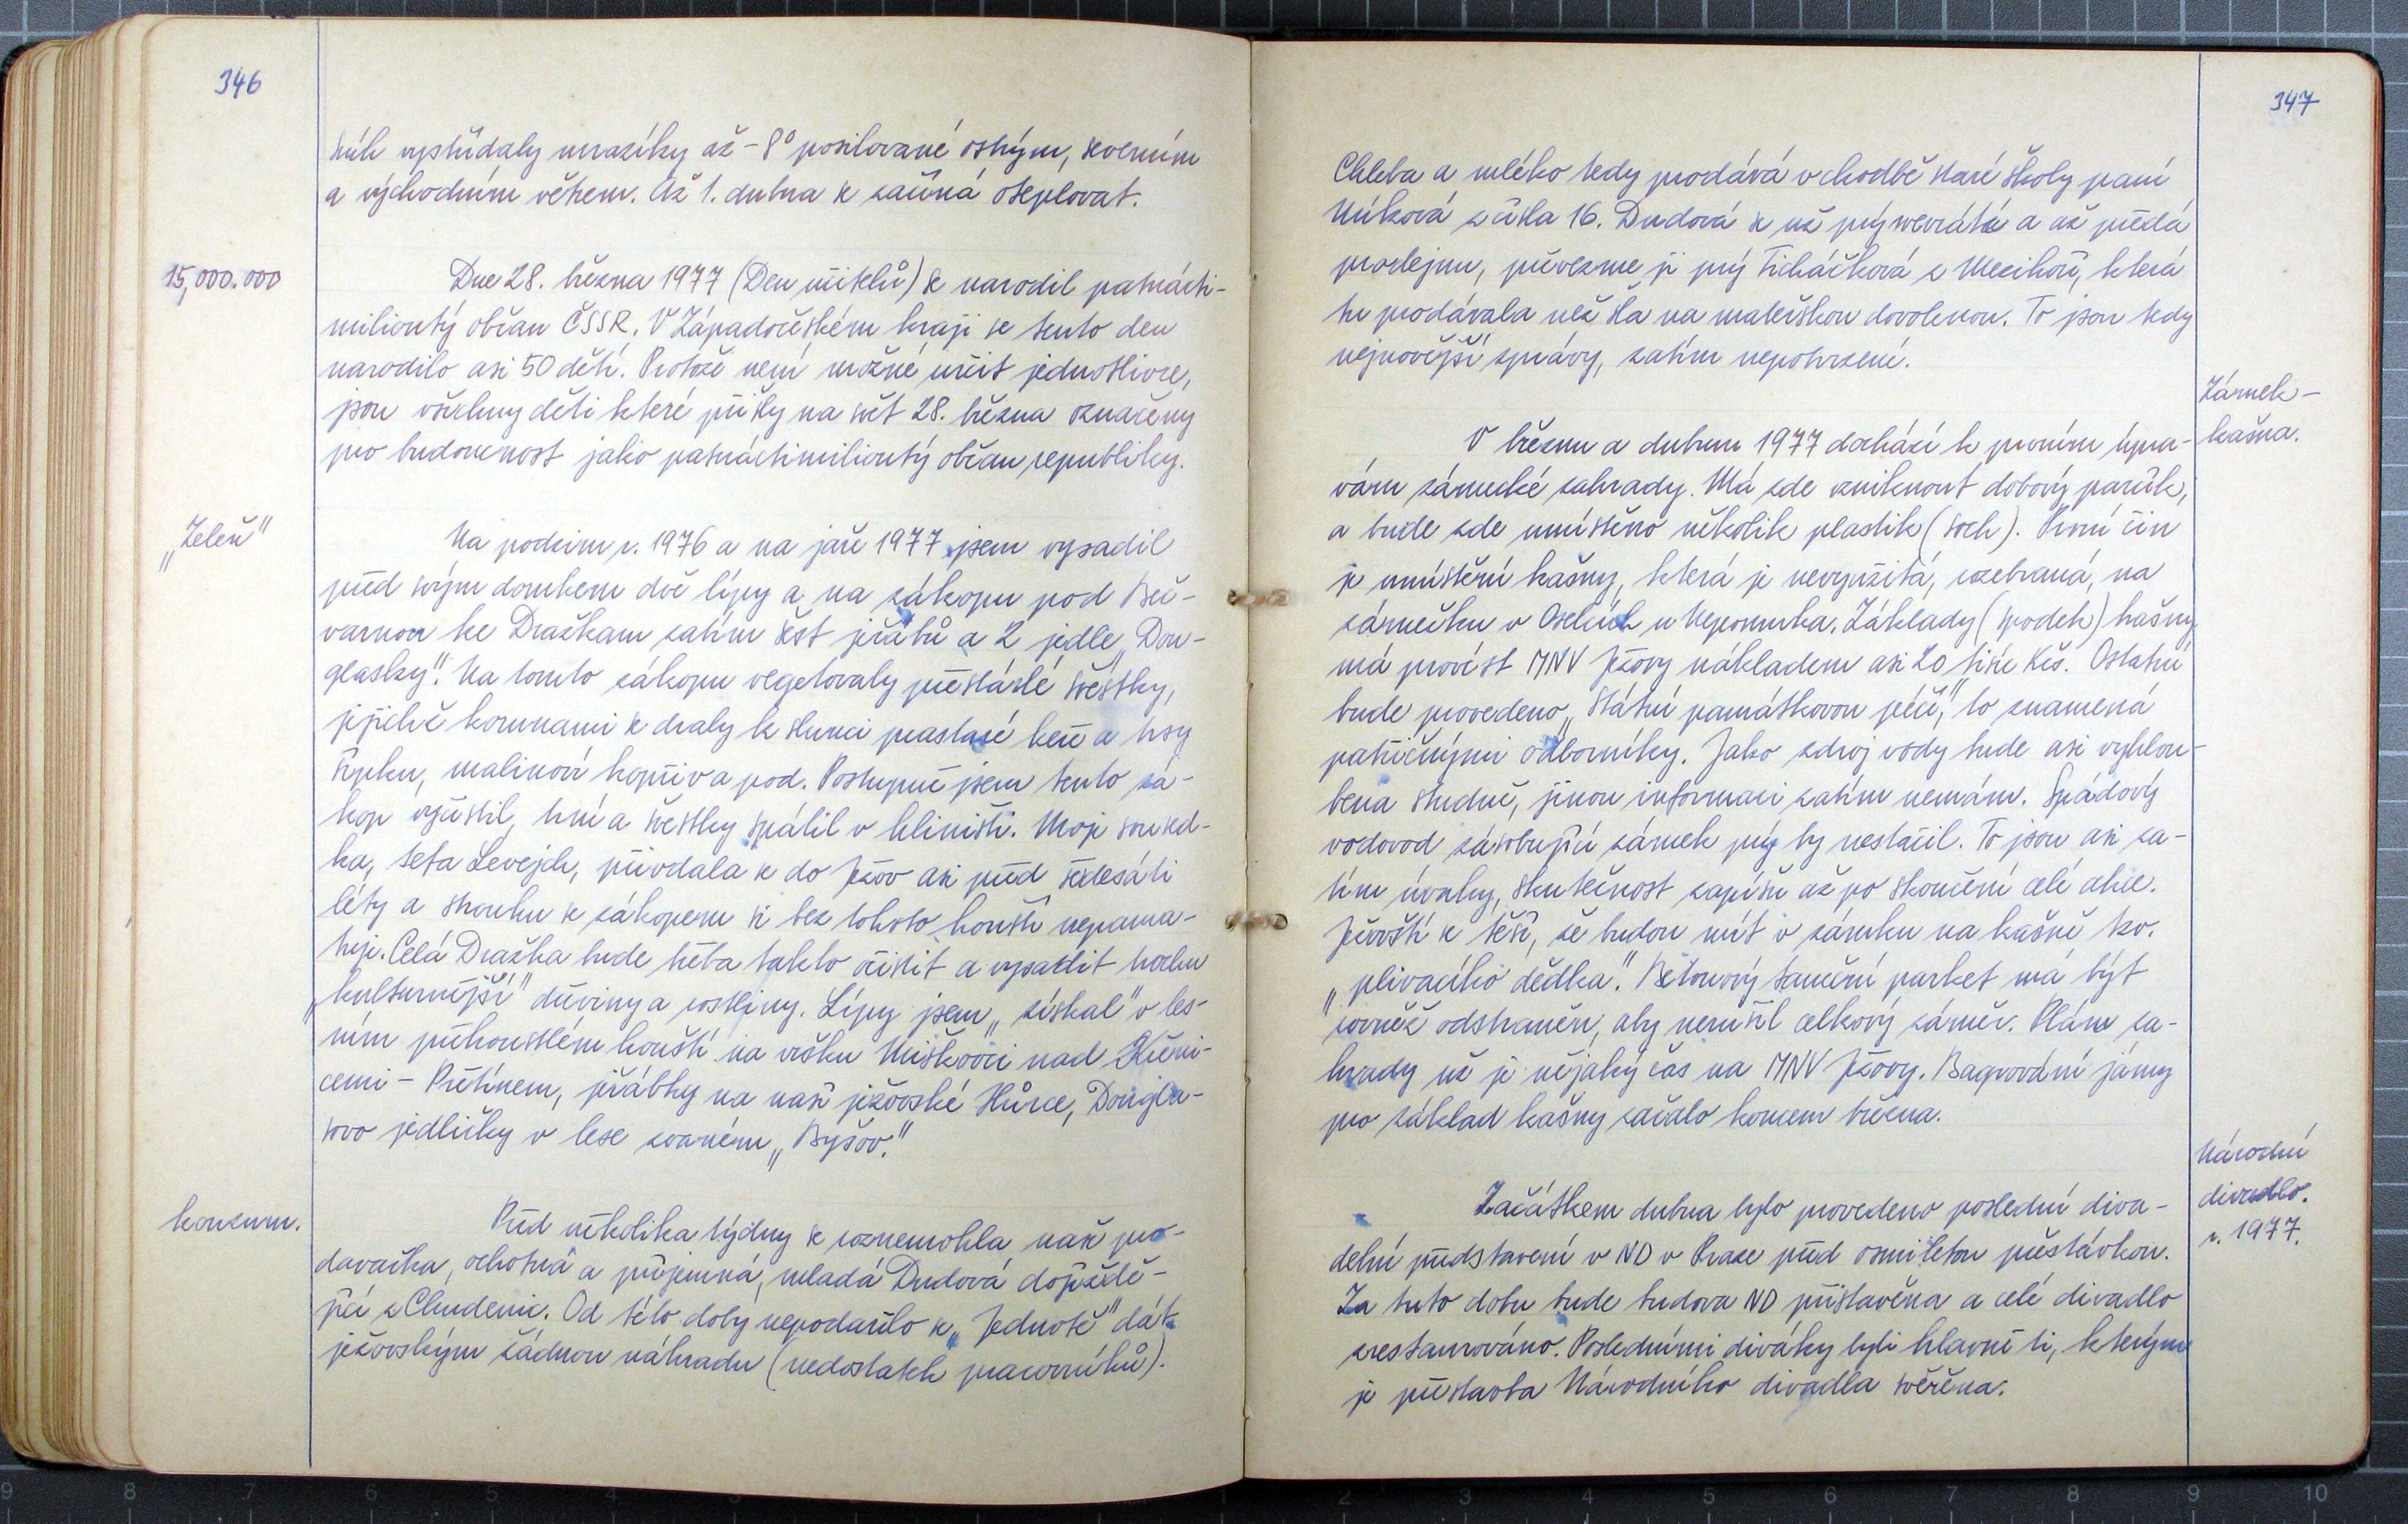 346
sníh vystřídaly mrazíky až -8° posilované ostrým, severním
a východním větrem. Až 1. dubna se začíná oteplovat.
15,000.000
Dne 28. března 1977 (Den učitelů) se narodil patnácti-
miliontý občan ČSSR. V Západočeském kraji se tento den
narodilo asi 50 dětí. Protože není možné určit jednotlivce,
jsou všechny děti které přišly na svět 28. března označeny
pro budoucnost jako patnáctimiliontý občan republiky.
„Zeleň"
Na podzim r. 1976 a na jaře 1977 jsem vysadil
před svým domkem dvě lípy a na zákopu pod Beč-
varnou ke Dražkam zatím šest jeřábů a 2 jedle „Dou-
glasky". Na tomto zákopu vegetovaly přestárlé švestky,
jejichž korunami se draly k slunci prastaré keře a trsy
šípku, malinoví kopřiv a pod. Postupně jsem tento zá-
kop vyčistil, trní a švestky spálil v hliništi. Moje soused-
ka, teta Levejch, přivdala se do Ježov asi před šedesáti
léty a strouhu se zákopem si bez tohoto houští nepama-
tuje. Celá Dražka bude třeba takto očistit a vysadit trochu
„kulturnější" dřeviny a rostliny. Lípy jsem „získal" v les-
ním přehoustlém houští na vršku Miškovci nad Křeni-
cemi - Přetínem, jeřábky na naší ježovské Hůrce, Dougla-
sovo jedličky v lese zvaném „Byšov".
konzum.
Před několika týdny se roznemohla naše pro-
davačka, ochotná a příjemná, mladá Dudová dojíždě-
jící z Chudenic. Od této doby nepodařilo se „Jednotě" dát
ježovským žádnou náhradu (nedostatek pracovníků).
347
Chleba a mléko tedy prodává v chodbě staré školy paní
Míková z čísla 16. Dudová se už prý nevrátí a až předá
prodejnu, převezme ji prý Ticháčková z Mezihoří, která
tu prodávala než šla na mateřskou dovolenou. To jsou tedy
nejnovější zprávy, zatím nepotvrzené.
Zámek -
kašna.
V březnu a dubnu 1977 dochází k prvním úpra-
vám zámecké zahrady. Má zde vzniknout dobový parčík,
a bude zde umístěno několik plastik (soch). První čin
je umístění kašny, která je nevyužitá, rozebraná, na
zámečku v Oselcích u Nepomuka. Základy (spodek) kašny
má provést MNV Ježovy nákladem asi 20 tisíc Kčs. Ostatní
bude provedeno „Státní památkovou péčí," to znamená
patřičnými odborníky. Jako zdroj vody bude asi vyhlou-
bena studně, jinou informaci zatím nemám. Spádový
vodovod zásobující zámek prý by nestačil. To jsou asi za-
tím úvahy, skutečnost zapíši až po skončení celé akce.
Ježovští se těší, že budou mít v zámku na kašně tzv.
„plivacího dědka". Betonový taneční parket má být
rovněž odstraněn, aby nerušil celkový záměr. Plán za-
hrady už je nějaký čas na MNV Ježovy. Bagrování jámy
pro základ kašny začalo koncem března.
Národní
divadlo.
r. 1977.
Začátkem dubna bylo provedeno poslední diva-
delní představení v ND v Praze před osmiletou přestávkou.
Za tuto dobu bude budova ND přistavěna a celé divadlo
zrestaurováno. Posledními diváky byli hlavně ti, kterým
je přestavba Národního divadla svěřena.